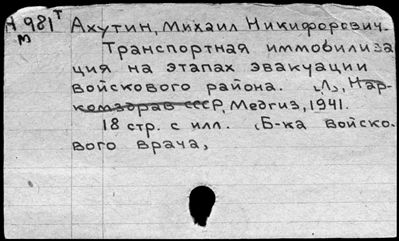 Н 981 т Ахутин, Михаил Никифорович.
м
Транспортная иммобилиза
ция на этапах эвакуации
войскового района. Л., Нар-
комздрав СССР, Медгиз, 1941.
18 стр. с илл. (Б-ка войско-
вого врача,